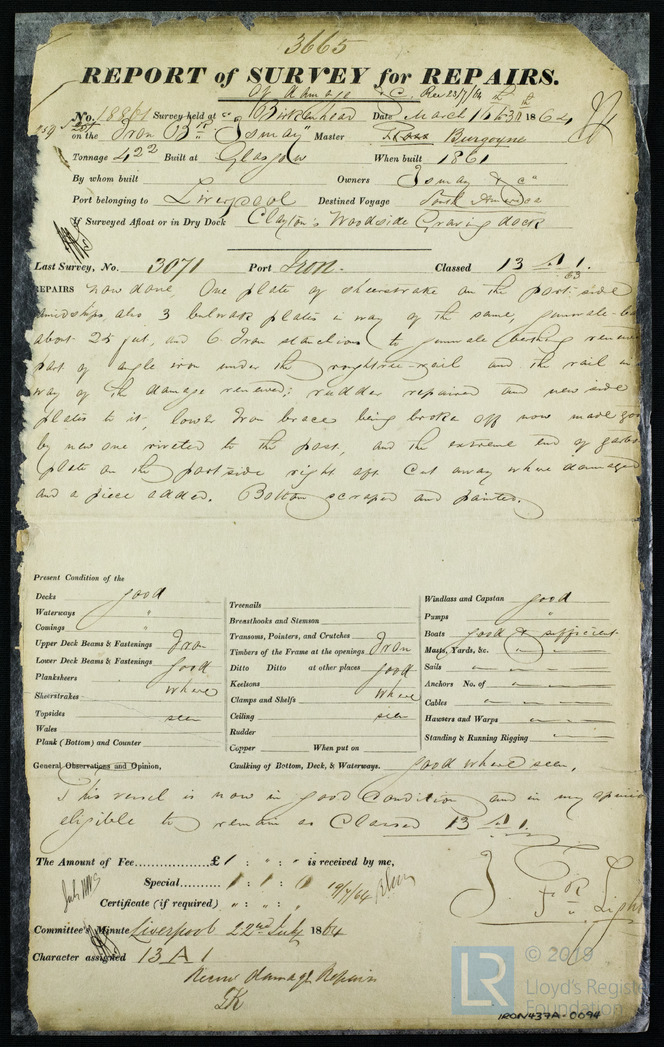 3665
REPORT of SURVEY for REPAIRS.
of damage &c. Rec 23/7/64
No. Survey held at Birkenhead Date March 16th 30th 1864
on the Iron "Ismay" Master Burgoyne
Tonnage 422 Built at Glasgow When built 1861
By whom built Owners Ismay & Co
Port belonging to Liverpool Destined Voyage South America
If Surveyed Afloat or in Dry Dock Clayton's Woodside Graving dock
Last Survey, No. 3071 Port Iron. Classed 13 A 1.
63
REPAIRS now done, One plate of sheerstrake on the port side
amidships, also 3 bulwark plates in way of the same, gunwale
about 25 feet, and 6 Iron stanchions to gunwale berthing renewed
part of angle iron under the roughtree-rail and the rail in
way of the damage renewed; rudder repaired and new side
plates to it, lower Iron brace being broke off now made good
by new one riveted to the post, and the extreme end of
plate on the port side right aft cut away where damaged
and a piece added. Bottom scraped and painted.
Present Condition of the
Decks good
Waterways "
Comings "
Upper Deck Beams & Fastenings Iron
Lower Deck Beams & Fastenings good
Planksheers where
Sheerstrakes
Topsides seen
Wales
Plank (Bottom) and Counter
Treenails
Breasthooks and Stemson
Transoms, Pointers, and Crutches
Timbers of the Frame at the openings Iron
Ditto Ditto at other places good
Keelsons
Clamps and Shelfs where
Ceiling seen
Rudder
Copper When put on
Windlass and Capstan good
Pumps "
Boats good & sufficient
Masts, Yards, &c.
Sails
Anchors No. of
Cables
Hawsers and Warps
Standing & Running Rigging
General Observations and Opinion, Caulking of Bottom, Deck, & Waterways. good where seen.
This vessel is now in good Condition and in my opinion
eligible to remain as Classed 13 A 1.
The Amount of Fee £1 : " : " is received by me,
Special 1 : 1 : 0 19/7/64
Certificate (if required) " : " : "
F R Light
Committee's Minute Liverpool 22nd July 1864
Character assigned 13 A 1
Recent damage Repairs
LR
© 2019
Lloyd's Register
Foundation
IRON437A-0094